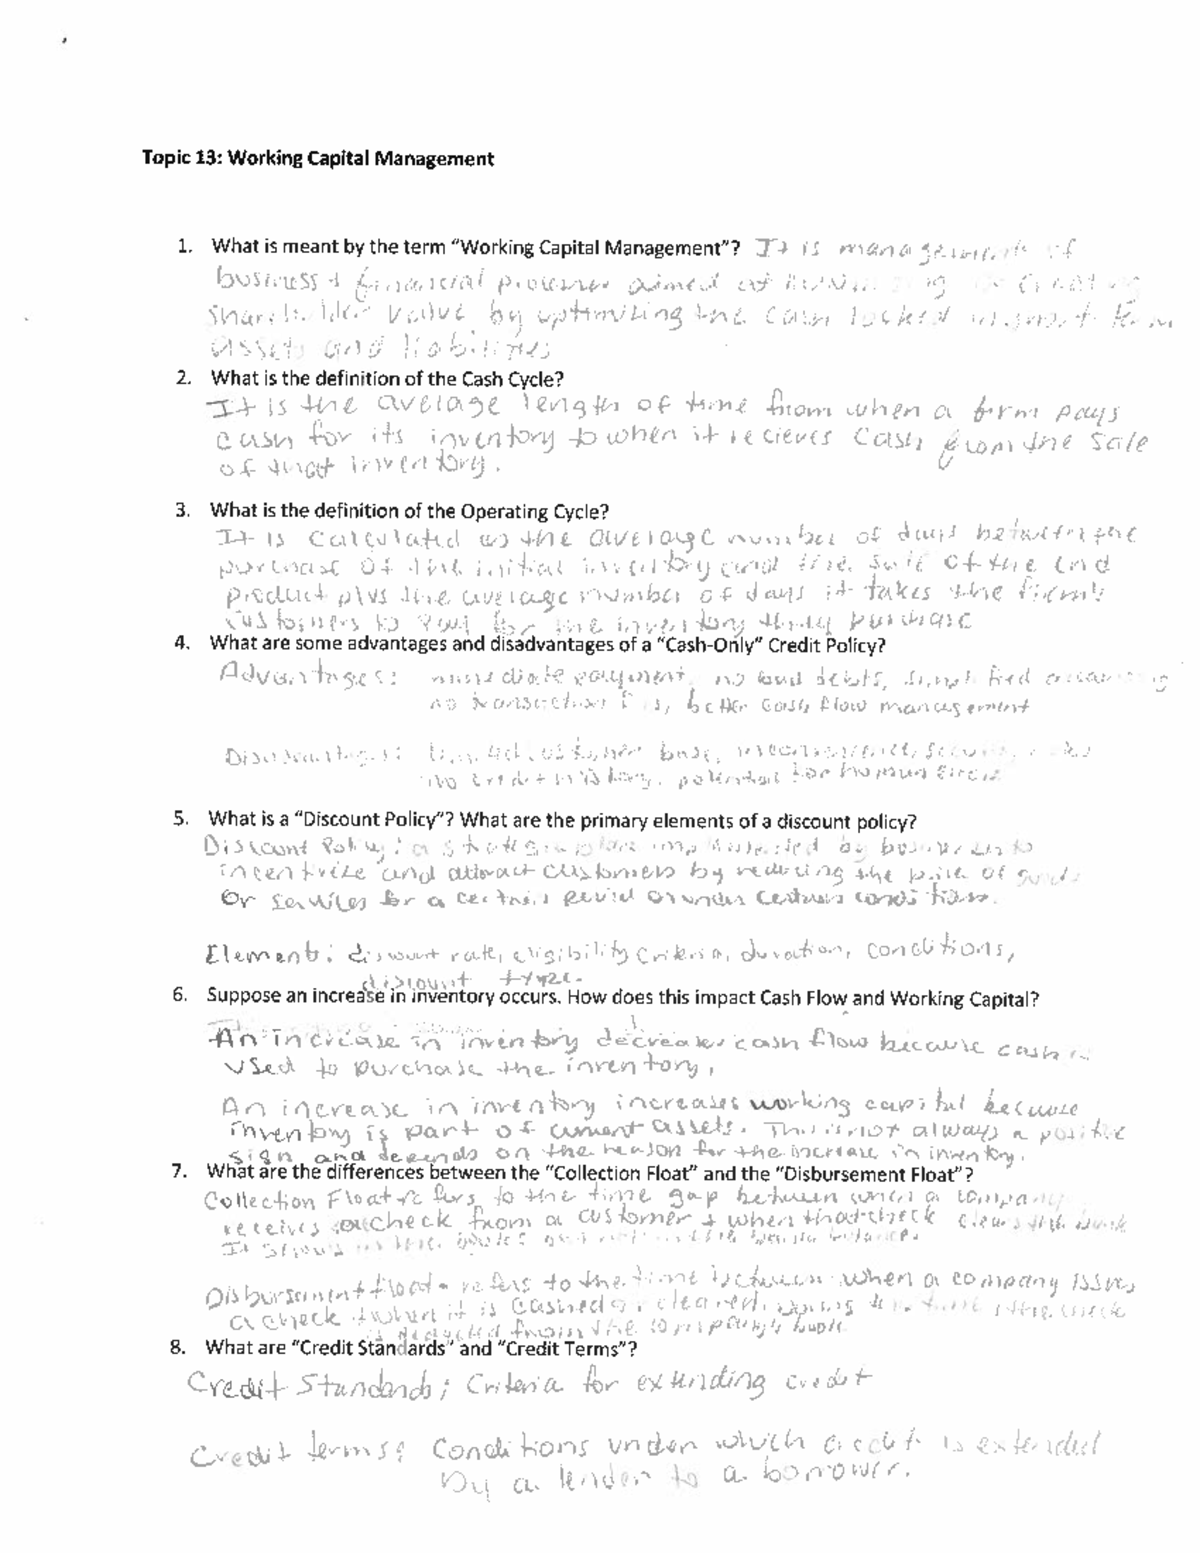 Topic 13: Working Capital Management
1. What is meant by the term “Working Capital Management”? It is management of
business & financial processes aimed at
shareholder value by optimizing the cash locked in short term
assets and liabilities
2. What is the definition of the Cash Cycle?
It is the average length of time from when a firm pays
cash for its inventory to when it recieves cash from the sale
of that inventory.
3. What is the definition of the Operating Cycle?
It is calculated as the average number of days between the
purchase of the initial inventory and the sale of the end
product plus the average number of days it takes the firm's
customers to pay for the inventory they purchase
4. What are some advantages and disadvantages of a “Cash-Only” Credit Policy?
Advantages: immediate payment, no bad debts, simplified accounting
no transaction fees, better cash flow management
Disadvantages: limited customer base, inconvenience, security risks
no credit history, potential for human error
5. What is a “Discount Policy”? What are the primary elements of a discount policy?
Discount Policy: a implemented by businesses to
incentivize and attract customers by reducing the price of goods
or services for a certain period or under certain conditions.
Elements: discount rate, eligibility criteria, duration, conditions,
discount type.
6. Suppose an increase in inventory occurs. How does this impact Cash Flow and Working Capital?
An increase in inventory decreases cash flow because cash is
used to purchase the inventory.
An increase in inventory increases working capital because
inventory is part of current assets. This is not always a positive
sign and depends on the reason for the increase in inventory.
7. What are the differences between the “Collection Float” and the “Disbursement Float”?
Collection Float refers to the time gap between when a company
receives a check from a customer & when that check clears the bank
It shows in the
Disbursement float - refers to the time between when a company issues
a check & when it is cashed or cleared. During this time the check
is deducted from the company's book
8. What are “Credit Standards” and “Credit Terms”?
Credit Standards; Criteria for extending credit
Credit terms: Conditions under which credit is extended
by a lender to a borrower.